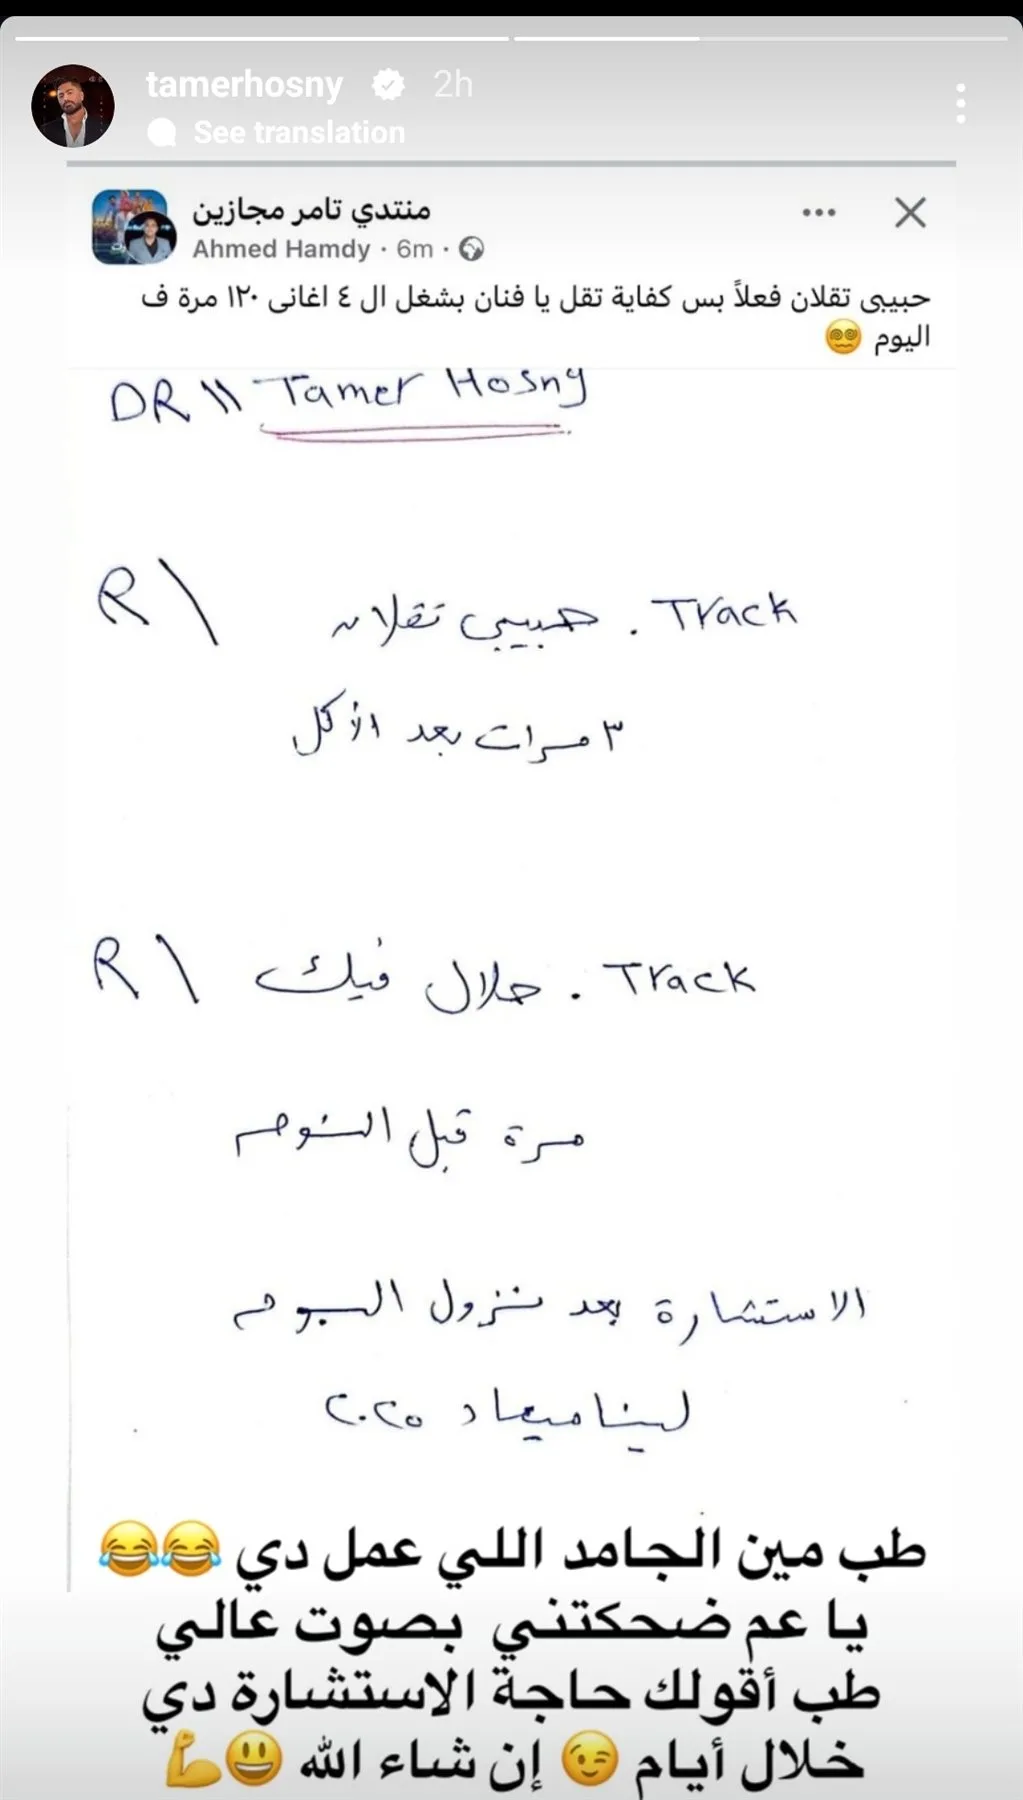 tamerhosny 2h
See translation
منتدي تامر مجازين
Ahmed Hamdy · 6m ·
حبيبى تقلان فعلاً بس كفاية تقل يا فنان بشغل ال ٤ اغانى ١٢٠ مرة ف
اليوم 😵‍💫
DR \\ Tamer Hosny
R \ Track . حبيبي تقلان
٣ مرات بعد الأكل
R \ Track . حلال فيك
مرة قبل النوم
الاستشارة بعد نزول البوم
لينا ميعاد ٢٠٢٥
طب مين الجامد اللي عمل دي 😂😂
يا عم ضحكتني بصوت عالي
طب أقولك حاجة الاستشارة دي
خلال أيام 😉 إن شاء الله 😃💪